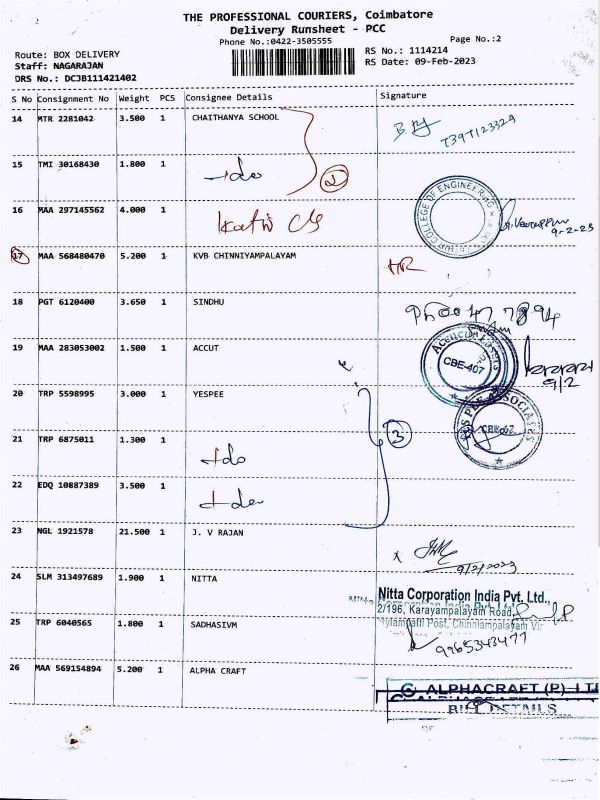 THE PROFESSIONAL COURIERS, Coimbatore
Delivery Runsheet - PCC
Phone No.:0422-3505555
Page No.:2
Route: BOX DELIVERY
RS No.: 1114214
Staff: NAGARAJAN
RS Date: 09-Feb-2023
DRS No.: DCJB111421402
S No Consignment No Weight PCS Consignee Details Signature
14 MTR 2281042 3.500 1 CHAITHANYA SCHOOL
15 TMI 30168430 1.800 1
do
2
16 MAA 297145562 4.000 1
COLLEGE OF ENGINEERING
9-2-23
17 MAA 568480470 5.200 1 KVB CHINNIYAMPALAYAM
HR
18 PGT 6120400 3.650 1 SINDHU
19 MAA 283053002 1.500 1 ACCUT
CBE-407
9/2
20 TRP 5598995 3.000 1 YESPEE
ASSOCIATES
3
21 TRP 6875011 1.300 1
do
22 EDQ 10887389 3.500 1
do
23 NGL 1921578 21.500 1 J. V RAJAN
9/2/2023
24 SLM 313497689 1.900 1 NITTA
Nitta Corporation India Pvt. Ltd.,
2/196, Karayampalayam Road,
Mylampatti Post, Chinniampalayam
25 TRP 6040565 1.800 1 SADHASIVM
9965343477
26 MAA 569154894 5.200 1 ALPHA CRAFT
ALPHACRAFT (P) LT